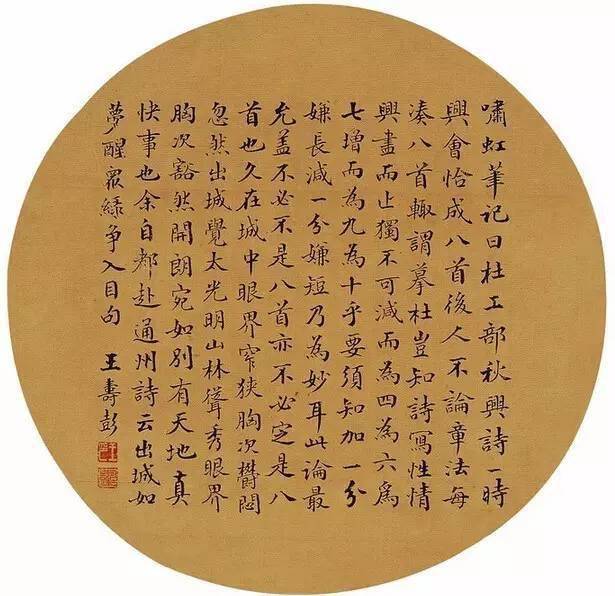 嘯虹筆記曰杜工部秋興詩一時
興會恰成八首後人不論章法每
湊八首輙謂摹杜豈知詩寫性情
興盡而止獨不可減而為四為六為
七增而為九為十乎要須知加一分
嫌長減一分嫌短乃為妙耳此論最
允盖不必不是八首亦不必定是八
首也久在城中眼界窄狹胸次鬱悶
忽然出城覺太光明山林聳秀眼界
胸次豁然開朗宛如別有天地真
快事也余自都赴通州詩云出城如
夢醒眾綠争入目句
王壽彭